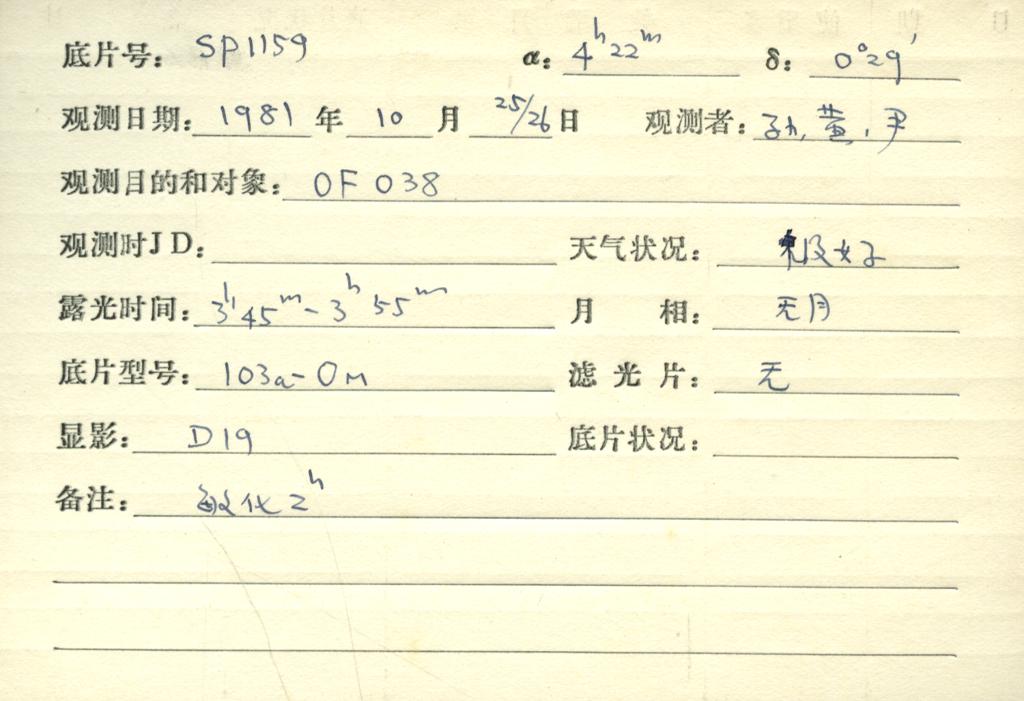 底片号: SP1159 α: 4ʰ22ᵐ δ: 0°29′
观测日期: 1981 年 10 月 25/26 日 观测者: 孙, 黄, 尹
观测目的和对象: OF 038
观测时JD: 天气状况: 极好
露光时间: 3ʰ45ᵐ-3ʰ55ᵐ 月 相: 无月
底片型号: 103a-O 滤光片: 无
显影: D19 底片状况:
备注: 敏化2ʰ